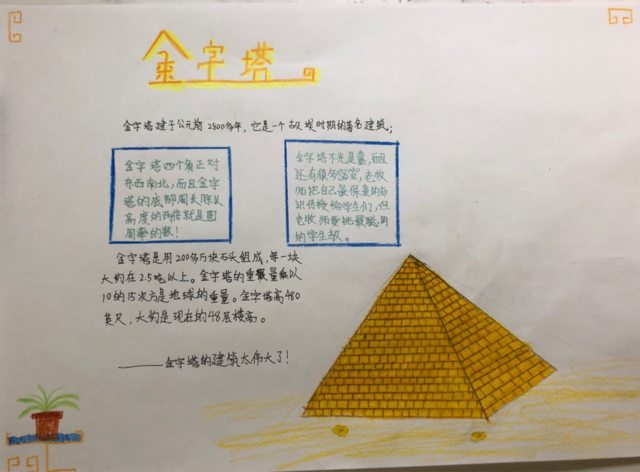 金字塔
金字塔建于公元前2500多年，它是一个古埃时期的著名建筑；
金字塔四个角正对
东西南北，而且金字
塔的底部周长除以
高度的两倍就是圆
周率的数！
金字塔不光是墓，而且
还有很多密室，老牧
师把自己最保重的知
识传授给学生们，但
老牧师要挑最聪明
的学生教。
金字塔是用200多万块石头组成，每一块
大约在2.5吨以上。金字塔的重量乘以
10的15次方是地球的重量。金字塔高480
英尺，大约是现在的48层楼高。
——金字塔的建筑太伟大了！